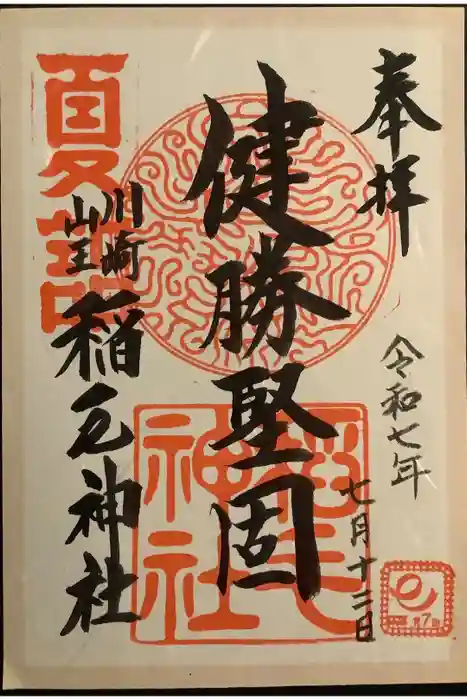 奉拝
令和七年
七月十二日
健勝堅固
川崎
山王
稲毛神社
夏詣
稲毛
神社